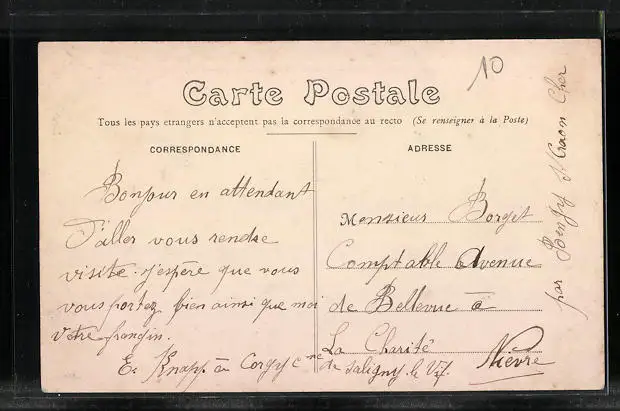 10
Carte Postale
Tous les pays etrangers n'acceptent pas la correspondance au recto (Se renseigner à la Poste)
CORRESPONDANCE
Bonjour en attendant
J'aller vous rendre
visite. j'espère que vous
vous portez bien ainsi que moi
Votre frangin.
E. Knapp à Corgy cne
de Saligny le Vif.
ADRESSE
Monsieur Borget
Comptable Avenue
de Bellevue à
La Charité
Nièvre
par Cher